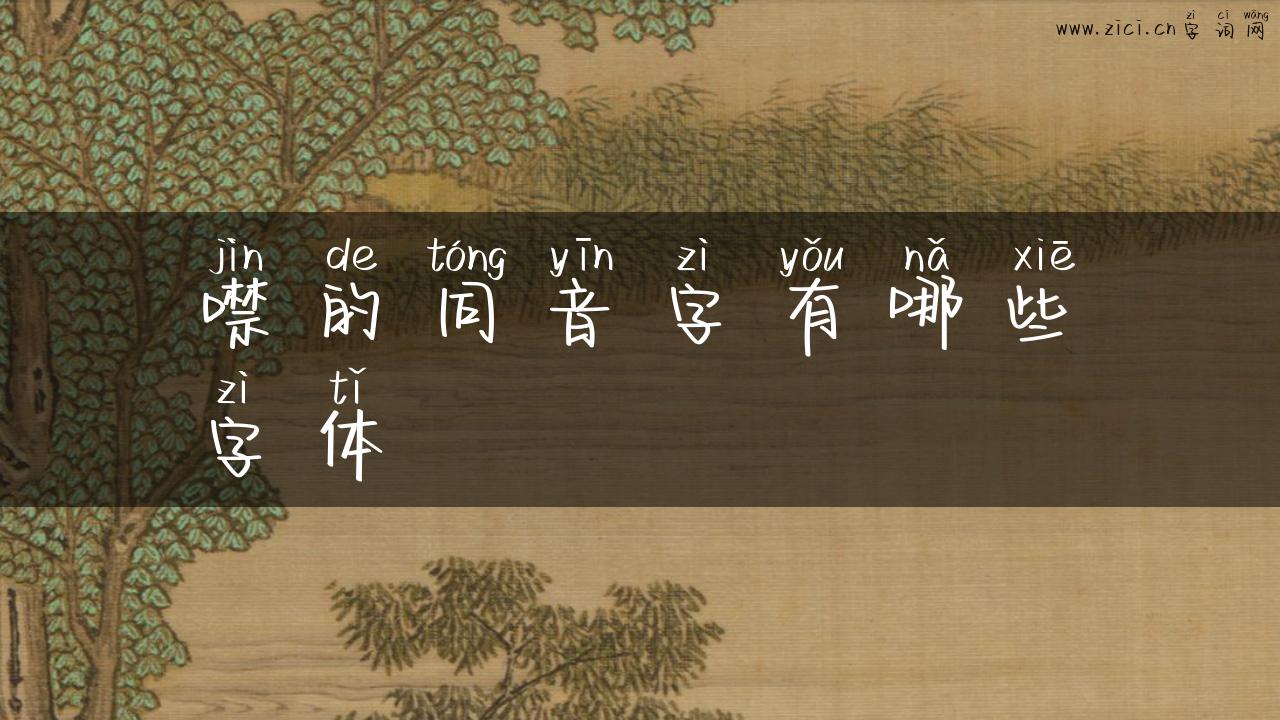 zì cí wǎng
www.zici.cn 字词网
jìn de tóng yīn zì yǒu nǎ xiē
噤的同音字有哪些
zì tǐ
字体